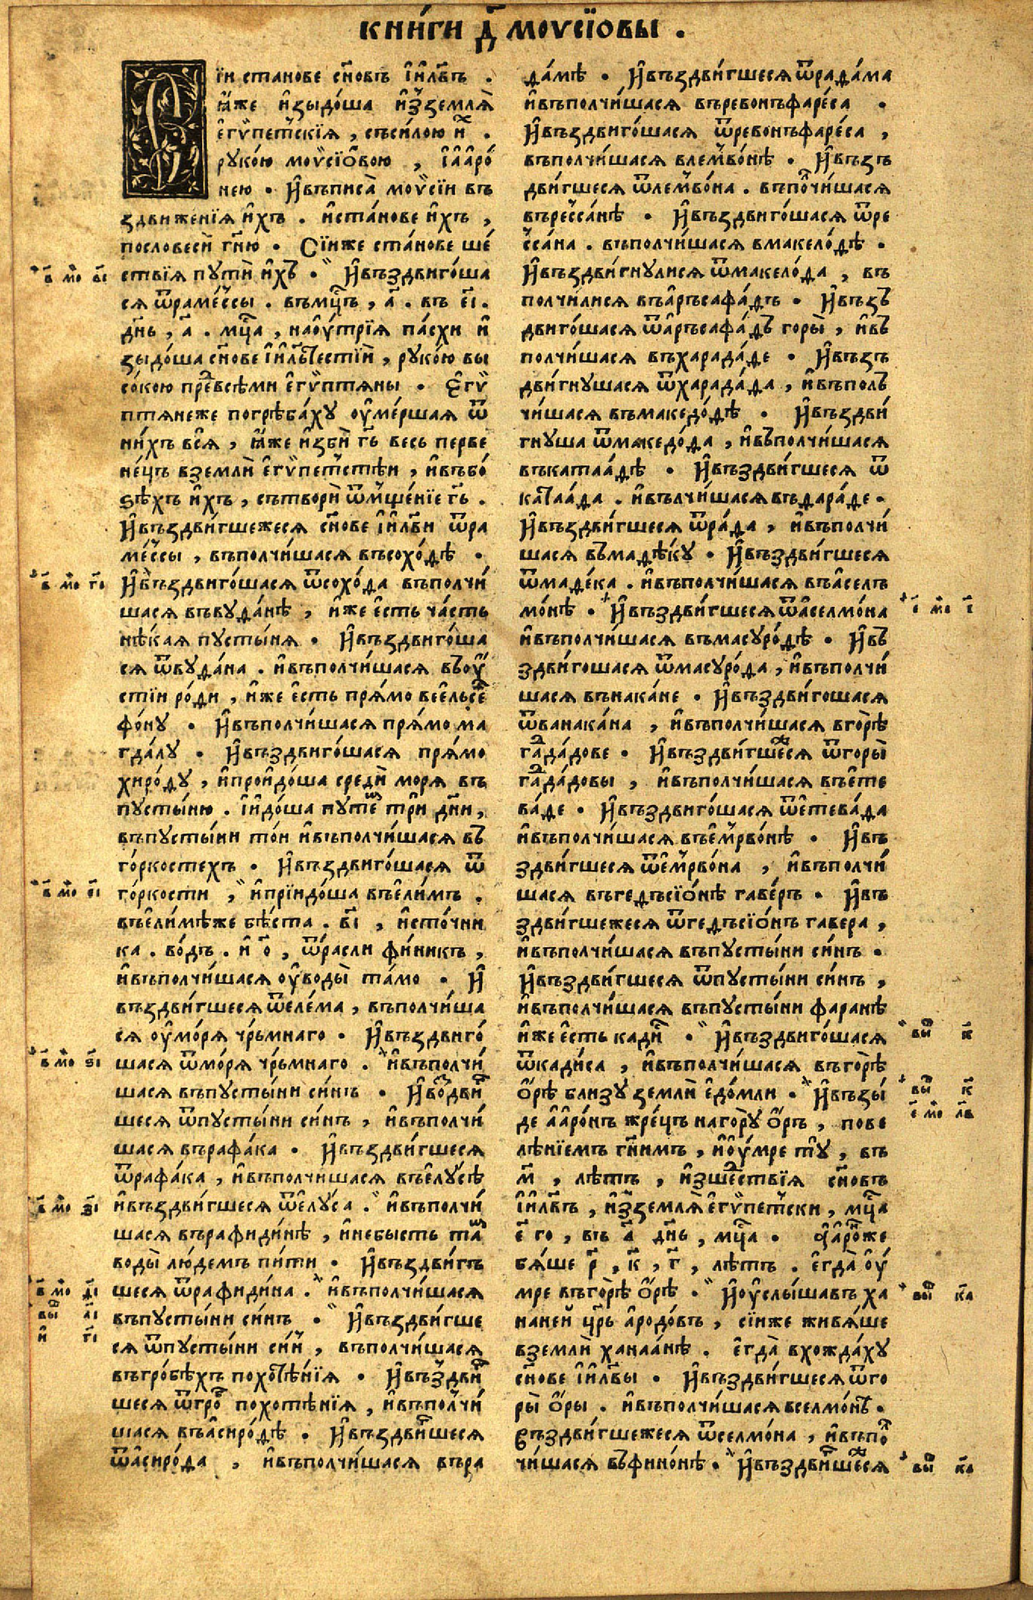 КНИ́ГИ Д҃ МОУСЇОВЫ .
їи станове сн҃овъ і҆и҃лвъ .
ꙗ҆́же и҆зыдо́ша и҆з̾землѧ̀
є҆гѵ́петскїѧ , съси́лою и҆х .
руко́ю моѵсїо́вою , і҆а҆аро́
нею . И҆въписа̀ моѵсі́и въ
здвиженїѧ и҆́хъ . и҆ста́нове и҆́хъ ,
пословесѝ гн҃ю . Сїи́же ста́нове ше́
ствїѧ путѝ и҆́хъ . И҆въздвиго́ша
сѧ ѿраме́ссы . въмц҃ъ , а҃ . въ є҃і .
дн҃ь , а҃ . мц҃а , наоу҆́трїѧ па́схи и҆
зыдо́ша сн҃ове і҆и҃льтестїи , руко́ю вы
со́кою пре́двсѣми є҆гѵ́птѧны . Є҆гѵ́
птѧнеже погрѣба́ху оу҆ме́ршаѧ ѿ
ни́хъ всѧ̀ , ꙗ҆́же и҆збѝ гь҃ весь перве
не́цъ вземлѝ є҆гѵ́петстѣи , и҆въбо́
ѕѣхъ и҆́хъ , сътворѝ ѿмще́нїе гь҃ .
И҆въздви́гшежесѧ сн҃ове і҆и҃лви ѿра
ме́ссы , въполчи́шасѧ въсохо́дѣ .
И҆въздвиго́шасѧ ѿсохо́да въполчи́
шасѧ въвуда́нѣ , и҆́же є҆́сть ча́сть
нѣ́каѧ пусты́нѧ . И҆въздвиго́ша
сѧ ѿвуда́на . и҆въполчи́шасѧ въоу҆́
стїи ро́ди , и҆́же є҆́сть прѧ́мо веельсе
фо́ну . И҆въполчи́шасѧ прѧ́мо ма
гда́лу . И҆въздвиго́шасѧ прѧ́мо
хиро́ду , и҆проидо́ша средѝ морѧ въ
пусты́ню . і҆и҆до́ша путе́м трѝ дн҃и ,
въпусты́ни то́и и҆въполчи́шасѧ въ
го́ркостехъ . И҆въздвиго́шасѧ ѿ
го́ркости , и҆прїидо́ша въе҆ли́мъ .
въе҆ли́мѣже бѣ́ста . в҃і , и҆сто́чни
ка . во́дъ . и҆ о҃ , ѿрасли фи́никъ ,
и҆въполчи́шасѧ оу҆воды̀ та́мо . И҆
въздви́гшесѧ ѿеле́ма , въполчи́ша
сѧ оу҆мо́рѧ чръмна́го . И҆въздвиго́
шасѧ ѿмо́рѧ чръмна́го . и҆въполчи́
шасѧ въпусты́ни си́нъ . И҆воздви́г
шесѧ ѿпусты́ни си́нъ , и҆въполчи́
шасѧ върафа́ка . И҆въздви́гшесѧ
ѿрафа́ка , и҆въполчи́шасѧ въе҆лу́сѣ
и҆въздви́гшесѧ ѿе҆лу́са . и҆въполчи́
шасѧ върафиди́нѣ , и҆небысть та́м
воды̀ лю́демъ пи́ти . И҆въздви́гъ
шесѧ ѿрафиди́на . и҆въполчи́шасѧ
въпусты́ни си́нъ . И҆въздви́гше
сѧ ѿпусты́ни си́н , въполчи́шасѧ
въгробѣхъ похоте́нїѧ . И҆въздви́г
шесѧ ѿгро́б похотѣ́нїѧ , и҆въполчи́
шасѧ въа҆сиро́дѣ . И҆въздви́гшесѧ
ѿа҆сиро́да , и҆въполчи́шасѧ въра
да́мѣ . И҆въздви́гшесѧ ѿрада́ма
и҆въполчи́шасѧ въревонъфаре́са .
И҆въздвиго́шасѧ ѿревонъфаре́са ,
въполчи́шасѧ влемво́нѣ . И҆възъ
дви́гшесѧ ѿлемво́на . въполчи́шасѧ
върессанѣ . И҆въздвиго́шасѧ ѿре
сса́на . въполчи́шасѧ вмакело́дѣ .
И҆въздви́гнулисѧ ѿмакело́да , въ
полчи́лисѧ въа҆рсафа́дъ . И҆възъ
двиго́шасѧ ѿа҆рсафа́дъ горы̀ , и҆въ
полчи́шасѧ въхарада́де . И҆възъ
дви́гнушасѧ ѿхарада́да , и҆въполъ
чи́шасѧ въмакедо́дѣ . И҆въздви́
гнуша ѿмакедо́да , и҆въполчи́шасѧ
въкатаа́дѣ . И҆въздви́гшесѧ ѿ
катаа́да . и҆вълчи́шасѧ въдара́де .
И҆въздви́гшесѧ ѿра́да , и҆въполчи́
шасѧ въмадѣ́ку . И҆въздви́гшесѧ
ѿмаде́ка . и҆въполчи́шасѧ въа҆селъ
мо́нѣ . И҆въздви́гшесѧ ѿа҆селмо́на
и҆въполчи́шасѧ въмасуро́дѣ . И҆въ
здви́гошасѧ ѿмасуро́да , и҆въполчи́
шасѧ въанака́не . И҆въздви́гошасѧ
ѿванака́на , и҆въполчи́шасѧ вго́рѣ
гадга́дове . И҆въздви́гшеже́сѧ ѿгоры̀
гадга́довы , и҆въполчи́шасѧ въе҆те
ва́де . И҆въздвиго́шасѧ ѿе҆тева́да
и҆въполчи́шасѧ въе҆мрво́нѣ . И҆въ
здви́гшесѧ ѿе҆мрво́на , и҆въполчи́
шасѧ въгедъсїо́нѣ гаве́ръ . И҆въ
здви́гшежесѧ ѿгедъсїо́нъ гавера ,
и҆въполчи́шасѧ въпусты́ни си́нъ .
И҆въздви́гшесѧ ѿпусты́ни си́нъ ,
и҆въполчи́шасѧ въпусты́ни фаранѣ
и҆́же є҆́сть кади́с . И҆въздвиго́шасѧ
ѿкади́са , и҆въполчи́шасѧ въго́рѣ
о҆́рѣ близу землѝ е҆до́мли . И҆възы́
де а҆аро́нъ жре́цъ наго́ру о҆́ръ , пове
лѣнїемъ гн҃имъ , и҆оу҆́мре ту̀ , въ
м҃ , лѣтъ , и҆зше́ствїѧ сн҃овъ
і҆и҃лвъ , и҆з̾землѧ̀ є҆гѵ́петски , мц҃а
є҃ го , въ а҃ дн҃ь , мц҃а . а҆аро́нже
бѧ́ше р҃ , к҃ , г҃ , лѣтъ . егда̀ оу҆́
мре въго́рѣ о҆́рѣ . И҆оу҆слы́шавъ ха
нане́и цр҃ь а҆ро́довъ , сїи́же живѧ́ше
вземлѝ ханаа́нѣ . е҆гда̀ вхожда́ху
сн҃ове і҆и҃лвы . И҆въздви́гшесѧ ѿго
ры̀ о҆́ры . и҆въполчи́шасѧ вселмо́нѣ .
въздви́гшежесѧ ѿселмо́на , и҆въпол
чи́шасѧ въфино́нѣ . И҆въздви́гшежесѧ
в҃ мо в҃і
в҃ мо г҃і
в҃ мо є҃і
в҃ мо ѕ҃і
в҃ мо з҃і
і҃ мо і҃
вы́ш к҃
вы́ш к҃
є҃ мо л҃в
вы́ш к҃а
вы́ш к҃а